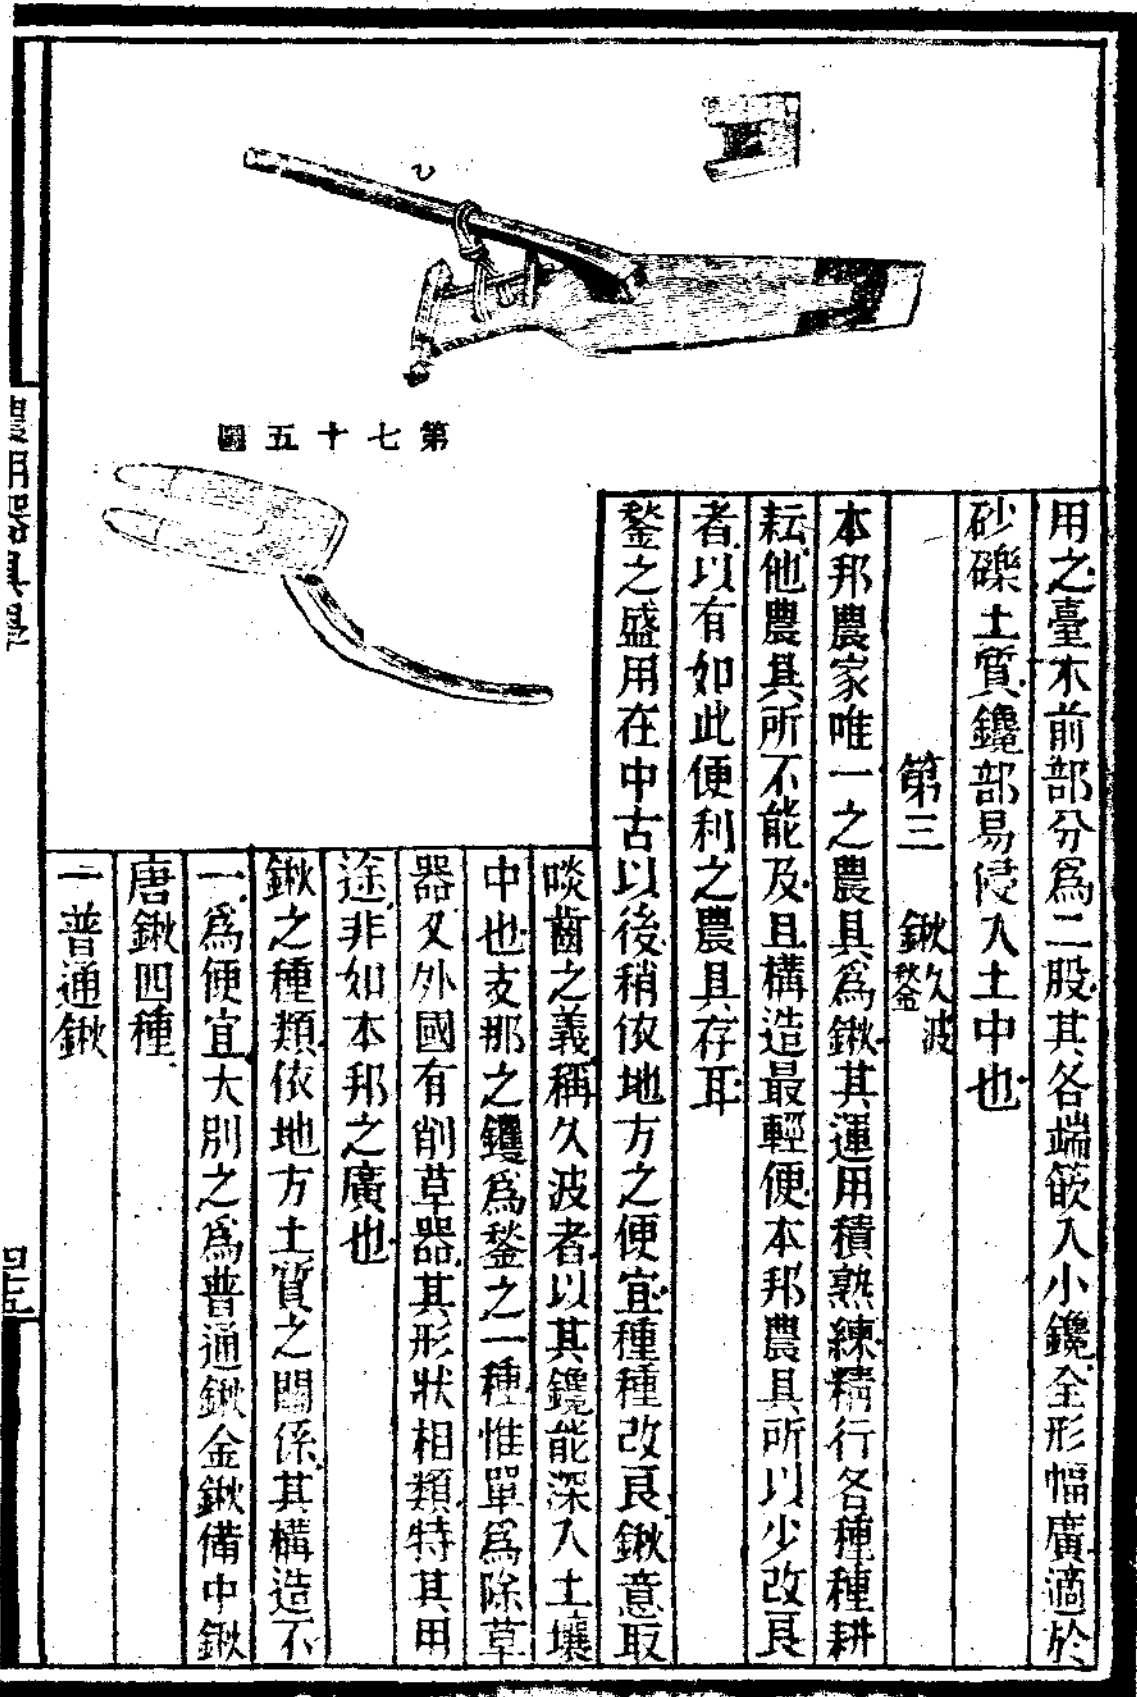 用之臺木前部分爲二股其各端篏入小鑱全形幅廣適於
砂礫土質鑱部易侵入土中也
第三 鍬久波 秋金
本邦農家唯一之農具爲鍬其運用積熟練精行各種種耕
耘他農具所不能及且構造最輕便本邦農具所以少改良
者以有如此便利之農具存耳
鍫之盛用在中古以後稍依地方之便宜種種改良鍬意取
啖齒之義稱久波者以其鑱能深入土壤
中也支那之钁爲鍫之一種惟單爲除草
器又外國有削草器其形狀相類特其用
途非如本邦之廣也
鍬之種類依地方土質之關係其構造不
一爲便宜大別之爲普通鍬金鍬備中鍬
唐鍬四種
一 普通鍬
ひ
第七十五圖
農用器具學
四十五